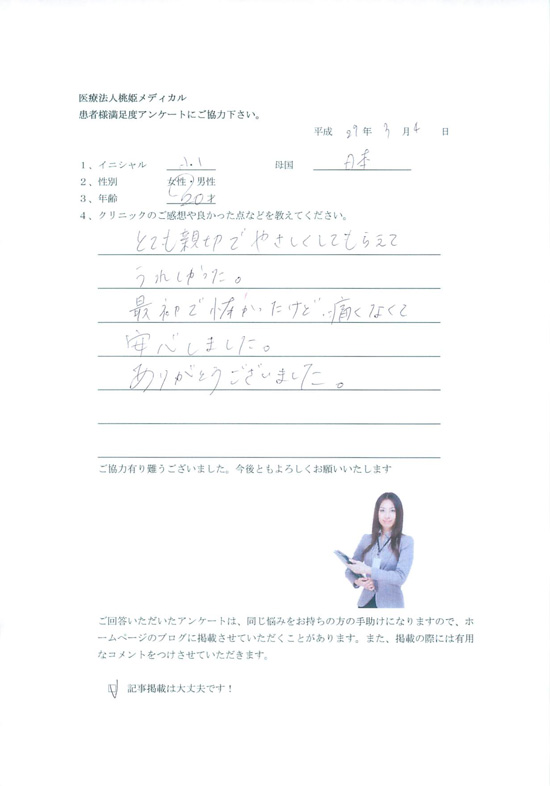 医療法人桃姫メディカル
患者様満足度アンケートにご協力下さい。
平成 29年 3月 4日
1、イニシャル 母国 日本
2、性別 女性・男性
3、年齢 20才
4、クリニックのご感想や良かった点などを教えてください。
とても親切でやさしくしてもらえて
うれしかった。
最初で怖かったけど痛くなくて
安心しました。
ありがとうございました。
ご協力有り難うございました。今後ともよろしくお願いいたします
ご回答いただいたアンケートは、同じ悩みをお持ちの方の手助けになりますので、ホ
ームページのブログに掲載させていただくことがあります。また、掲載の際には有用
なコメントをつけさせていただきます。
記事掲載は大丈夫です！